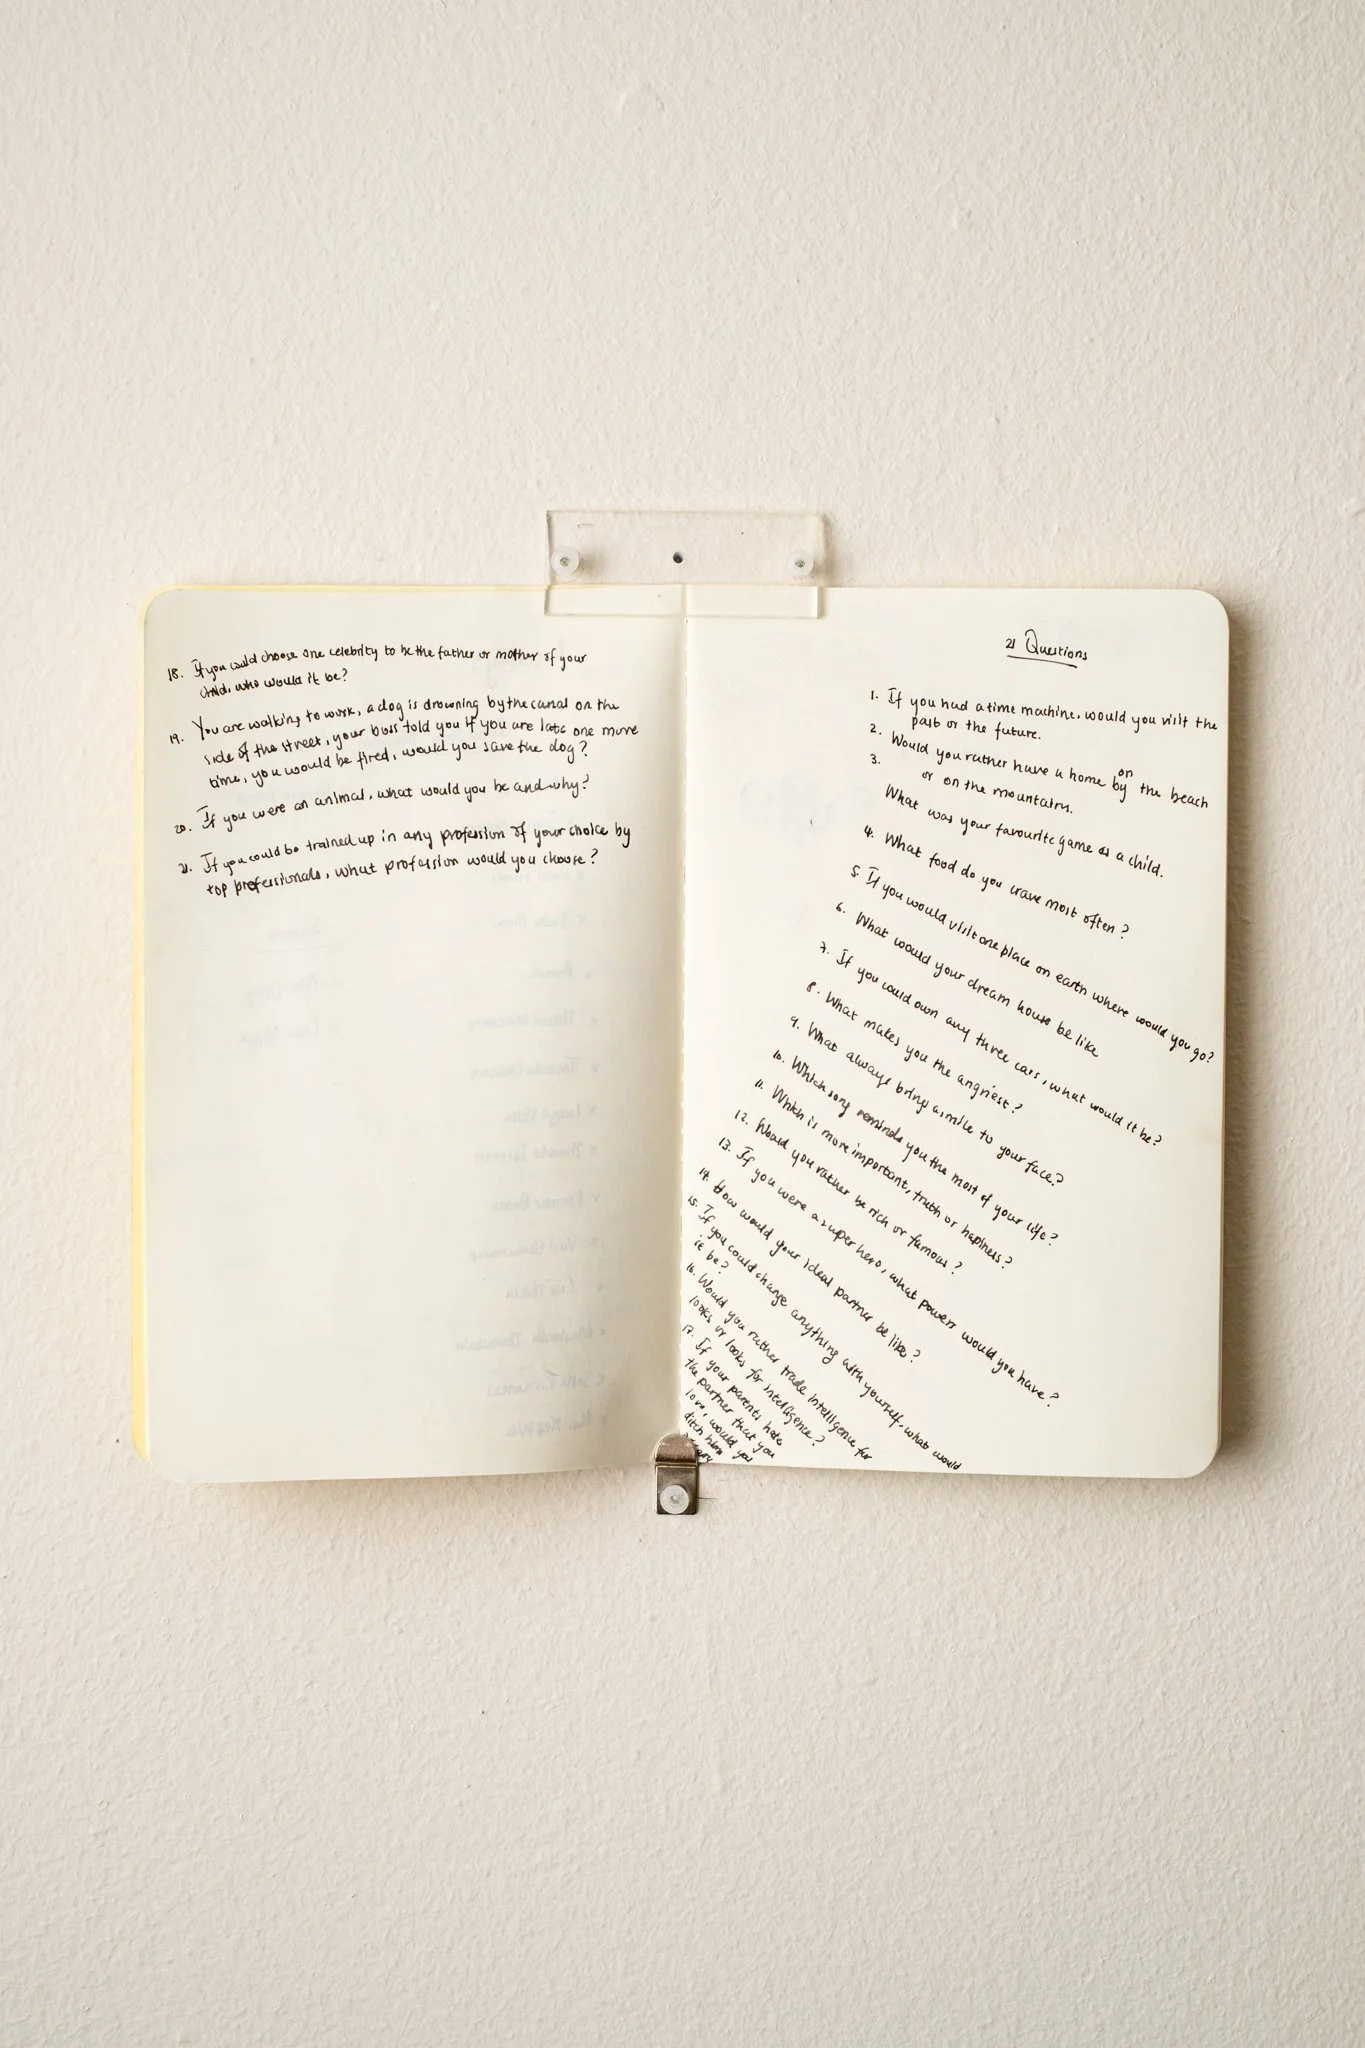 18. If you could choose one celebrity to be the father or mother of your
child, who would it be?
19. You are walking to work, a dog is drowning by the canal on the
side of the street, your boss told you if you are late one more
time, you would be fired, would you save the dog?
20. If you were an animal, what would you be and why?
21. If you could be trained up in any profession of your choice by
top professionals, what profession would you choose?
21 Questions
1. If you had a time machine, would you visit the
past or the future.
2. Would you rather have a home by on the beach
3. or on the mountains.
What was your favourite game as a child.
4. What food do you crave most often?
5. If you would visit one place on earth where would you go?
6. What would your dream house be like
7. If you could own any three cars, what would it be?
8. What makes you the angriest?
9. What always bring a smile to your face?
10. Which song reminds you the most of your life?
11. Which is more important, truth or hapiness?
12. Would you rather be rich or famous?
13. If you were a super hero, what powers would you have?
14. How would your ideal partner be like?
15. If you could change anything with yourself, what would
it be?
16. Would you rather trade intelligence for
looks or looks for intelligence?
17. If your parents hate
the partner that you
love, would you
ditch him